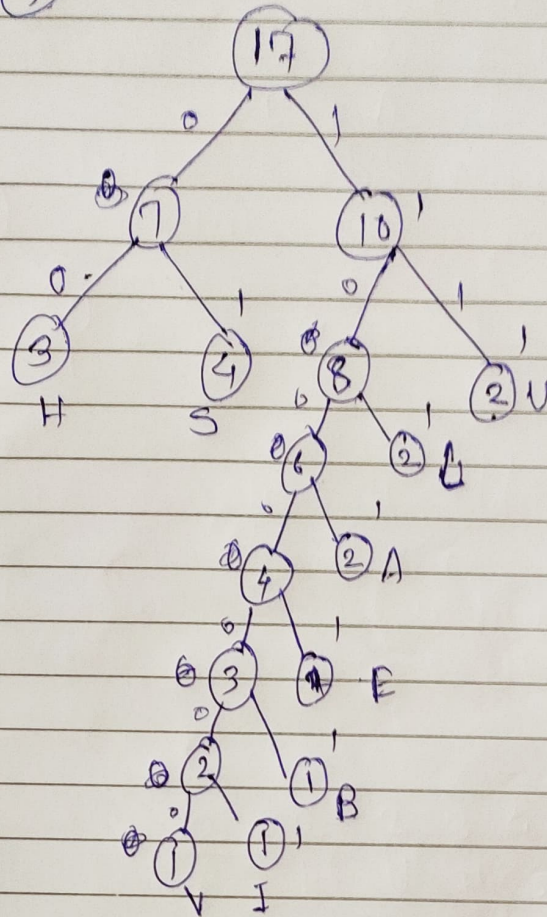 17
0 1
7 10 1
0 1 0 1
3 4 8 2 1
H S U
0 1
6 2
0 1
4 2 A
0 1
3 1 E
0 1
2 1 B
0
1 1 1
V I